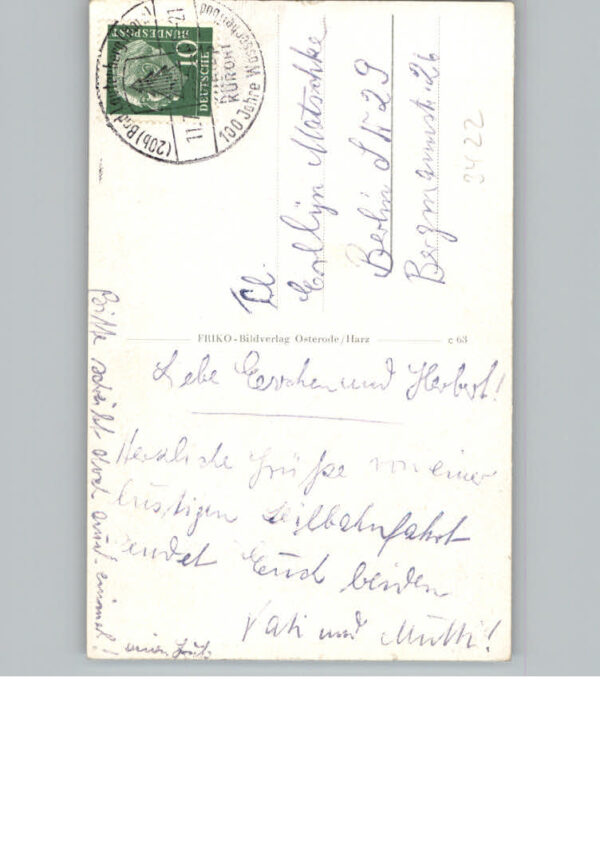 (20b) Bad
11.
21
KURORT
100 Jahre
DEUTSCHE
BUNDESPOST
10
Fl.
Matschke
Berlin SW 29
Bergmannstr. 26
3422
FRIKO-Bildverlag Osterode/Harz
c 63
Liebe und Herbert!
Herzliche Grüße von einer
lustigen Seilbahnfahrt
sendet Euch beiden
Vati und Mutti!
Bitte schreibt doch auch einmal!